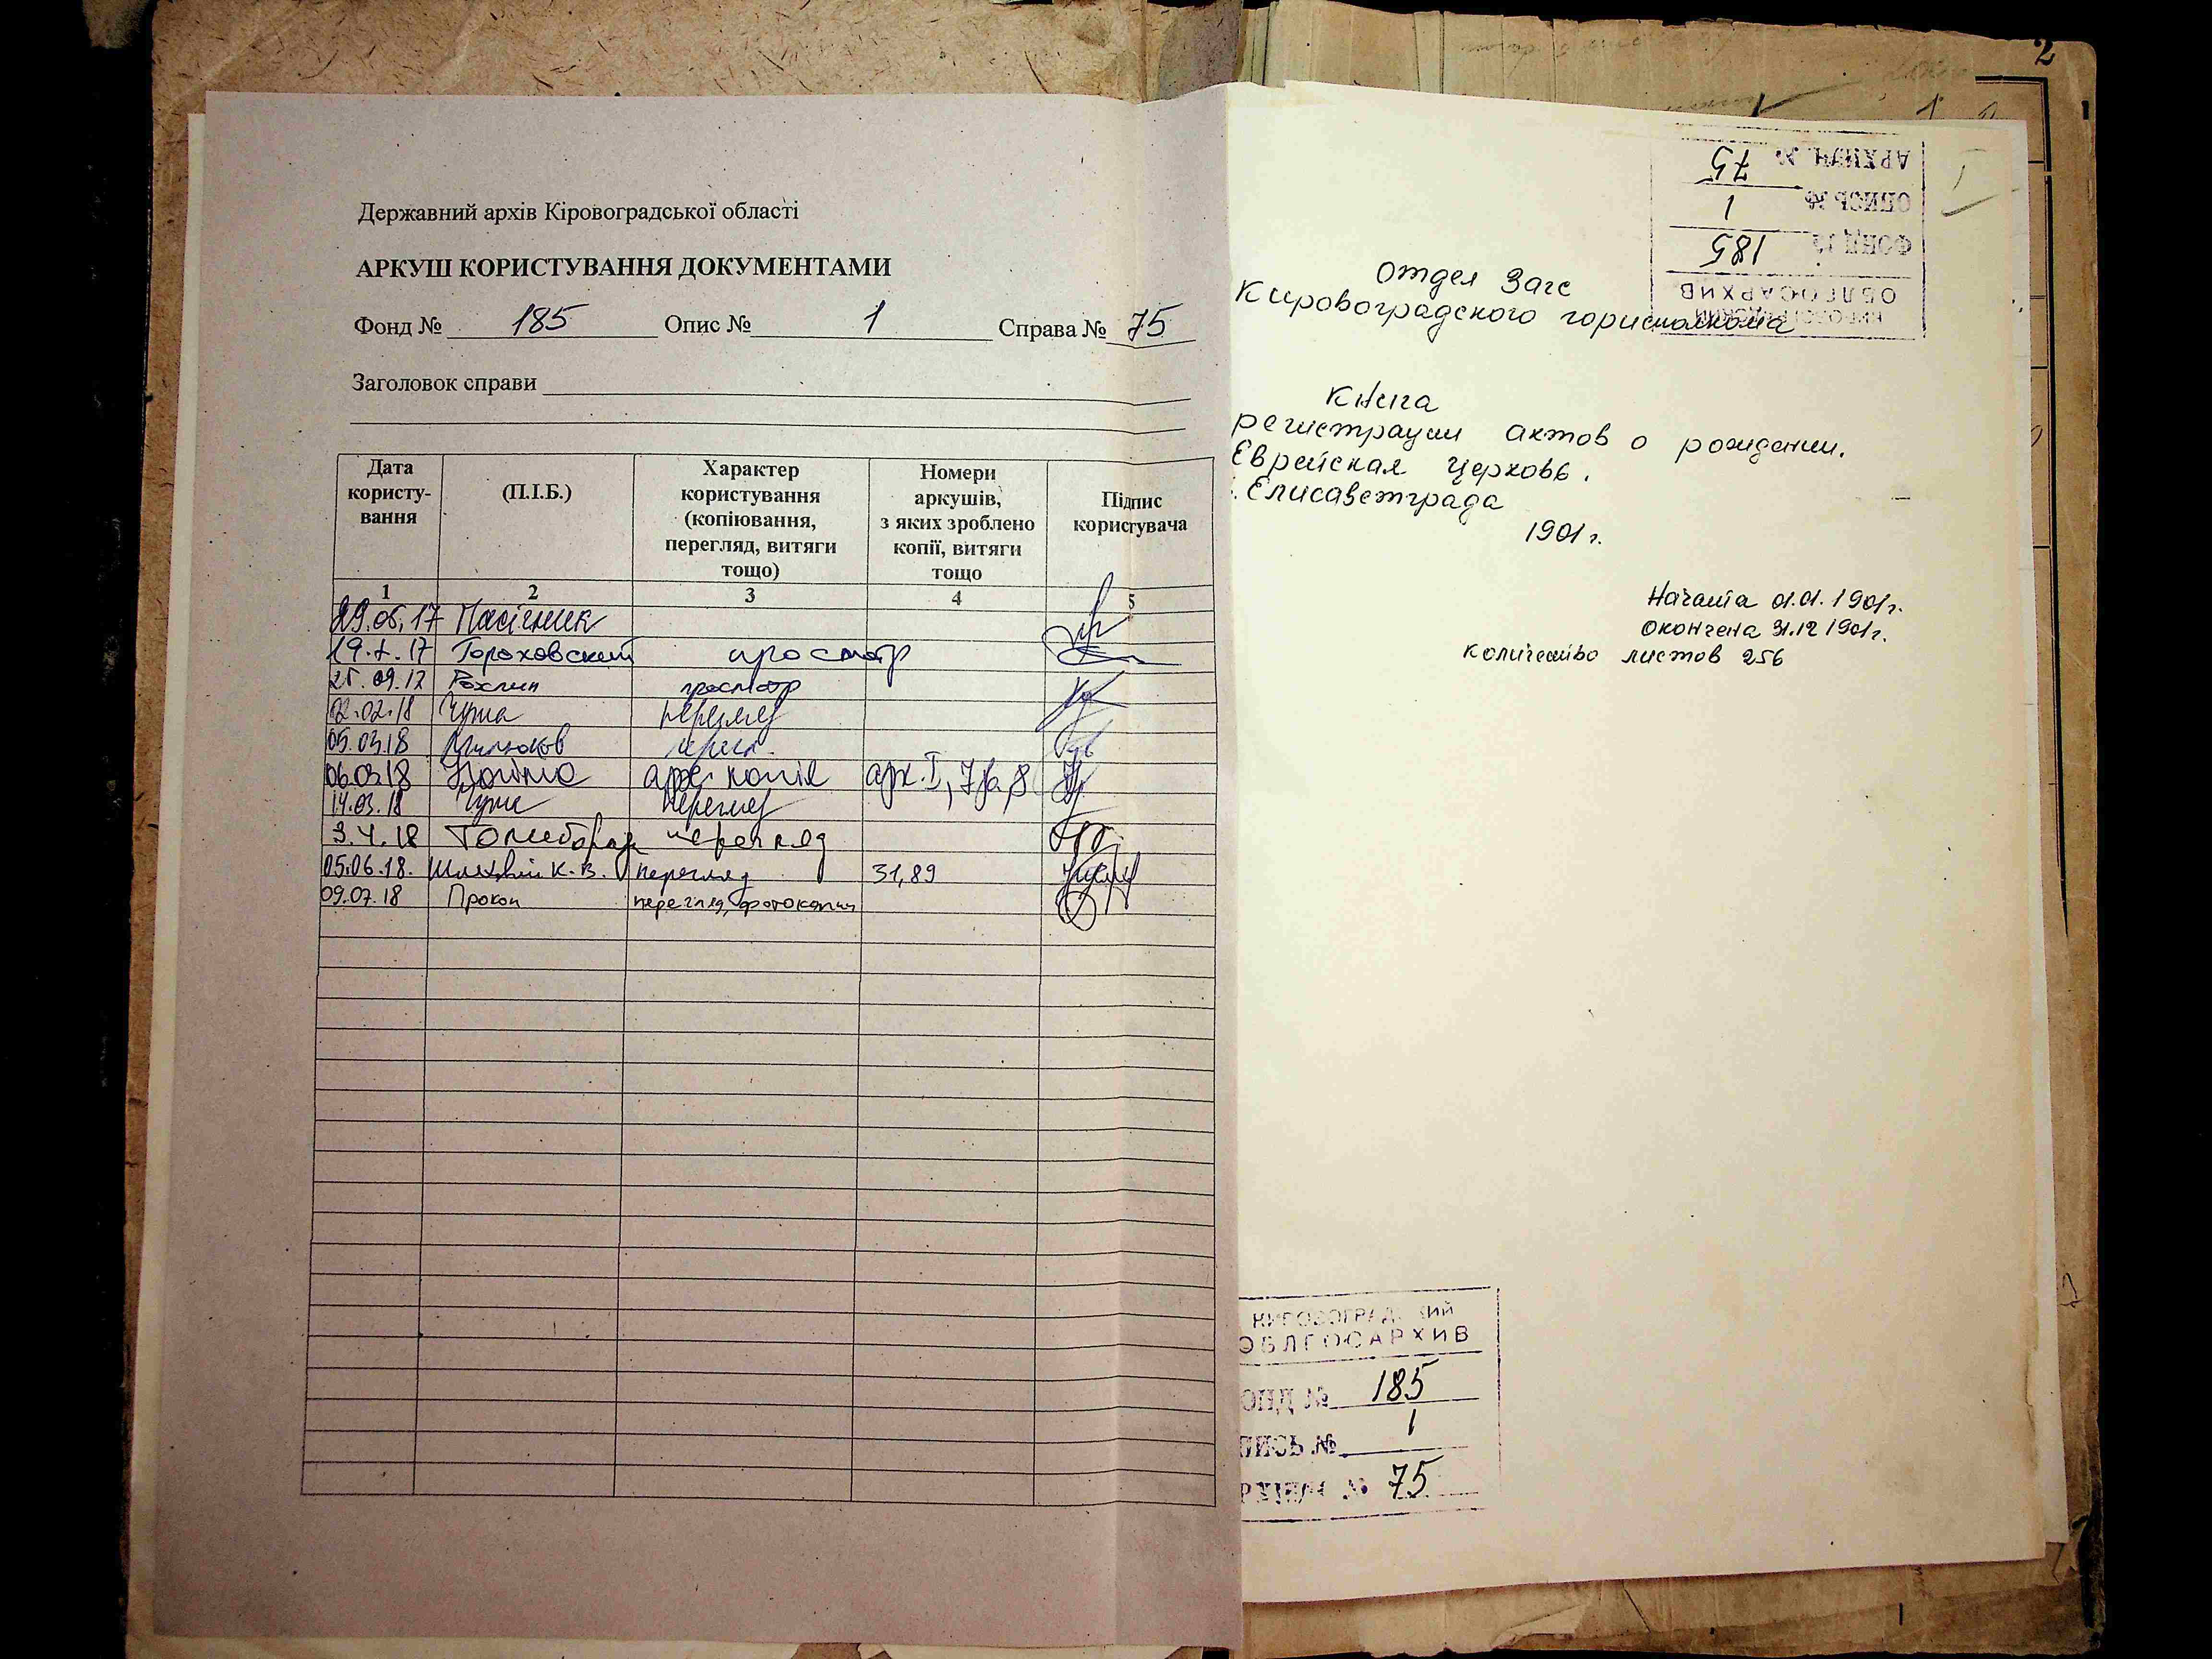 Державний архів Кіровоградської області
АРКУШ КОРИСТУВАННЯ ДОКУМЕНТАМИ
Фонд № 185 Опис № 1 Справа № 75
Заголовок справи
Дата користу-вання
(П.І.Б.)
Характер користування (копіювання, перегляд, витяги тощо)
Номери аркушів, з яких зроблено копії, витяги тощо
Підпис користувача
1 2 3 4 5
29.05.17 Пасічник
19.7.17 Гороховский просмотр
25.09.17 Рохлин просмотр
02.02.18 перегляд
05.03.18
06.03.18 копія арк. I,
14.03.18 перегляд
3.4.18 перегляд
05.06.18. К.В. перегляд 31,89
09.07.18 Прокоп перегляд, фотокопии
2
АРХИУН. № 75
ОПИСЬ № 1
ФОНД № 185
ОБЛГОСАРХИВ
I
Отдел Загс
Кировоградского горисполкома
Книга
регистрации актов о рождении.
Еврейская церковь.
г. Елисаветграда
1901 г.
Начата 01.01.1901г.
Окончена 31.12 1901г.
количество листов 256
КИРОВОГРАДСКИЙ
ОБЛГОСАРХИВ
ОНД № 185
ПИСЬ № 1
№ 75